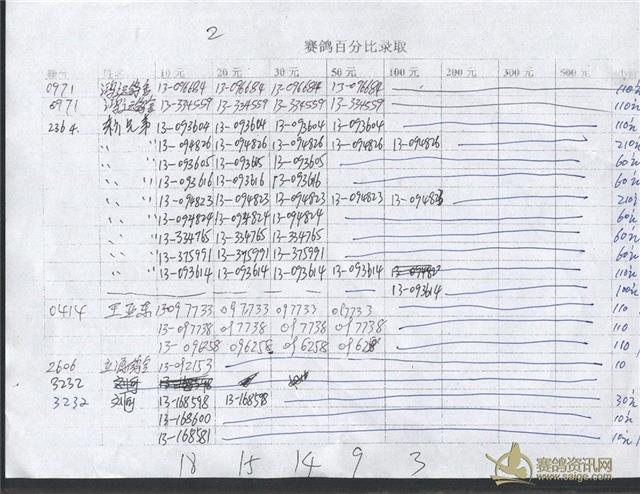 2
赛鸽百分比录取
棚号 姓名 10元 20元 30元 50元 100元 300元 500元 小计
0971 鸿运鸽舍 13-096684 13-096684 13-096684 13-096684 110元
0971 鸿运鸽舍 13-334559 13-334559 13-334559 13-334559 110元
2364 兄弟 13-093604 13-093604 13-093604 13-093604 110元
〃 〃 13-094826 13-094826 13-094826 13-094826 13-094826 210元
〃 〃 13-093605 13-093605 13-093605 60元
〃 〃 13-093616 13-093616 13-093616 60元
〃 〃 13-094823 13-094823 13-094823 13-094823 13-094823 210元
〃 〃 13-094824 13-094824 13-094824 60元
〃 〃 13-334765 13-334765 13-334765 60元
〃 〃 13-375991 13-375991 13-375991 60元
〃 〃 13-093614 13-093614 13-093614 13-093614 110元
13-093614 100元
0414 王亚东 13-097733 097733 097733 097733 110
13-097738 097738 097738 097738 110
13-096258 096258 096258 096258 110
2606 13-092153 10
3232 刘河
3232 刘河 13-168598 13-168598 30元
13-168600 10元
13-168581 10元
18 15 14 9 3
赛鸽资讯网
www.saige.com